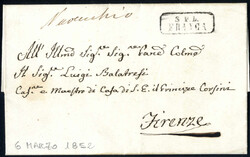 Navacchio
S.P.L.
FRANCA
All' Illmo Sigre Sigre Pané Colmo
Il Sigr Luigi Balatresi
Casre e Maestro di Casa di S. E. il Principe Corsini
Firenze
6 MARZO 1852